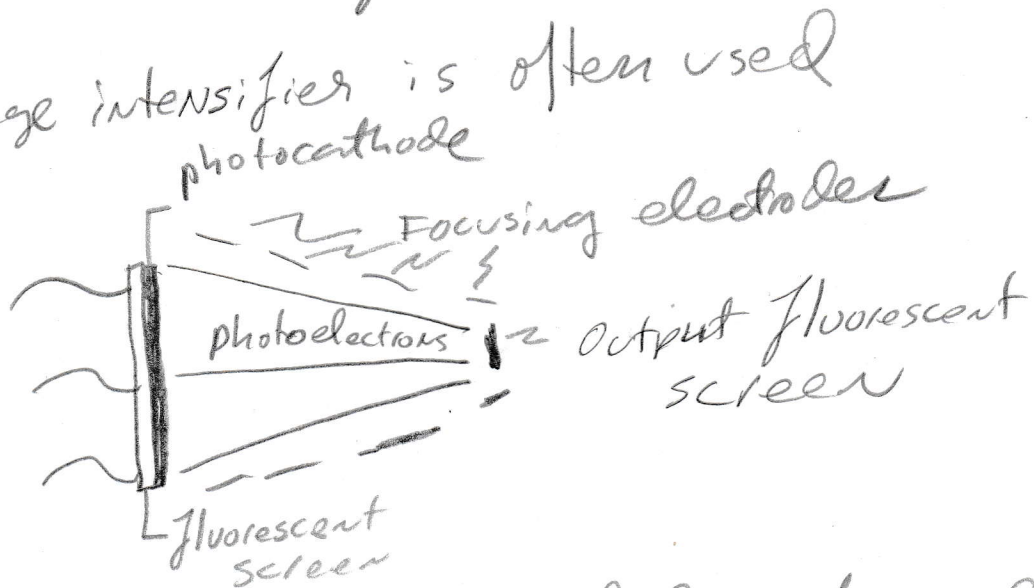 ge intensifier is often used
photocathode
Focusing electrodes
photoelectrons
Output fluorescent
screen
fluorescent
screen